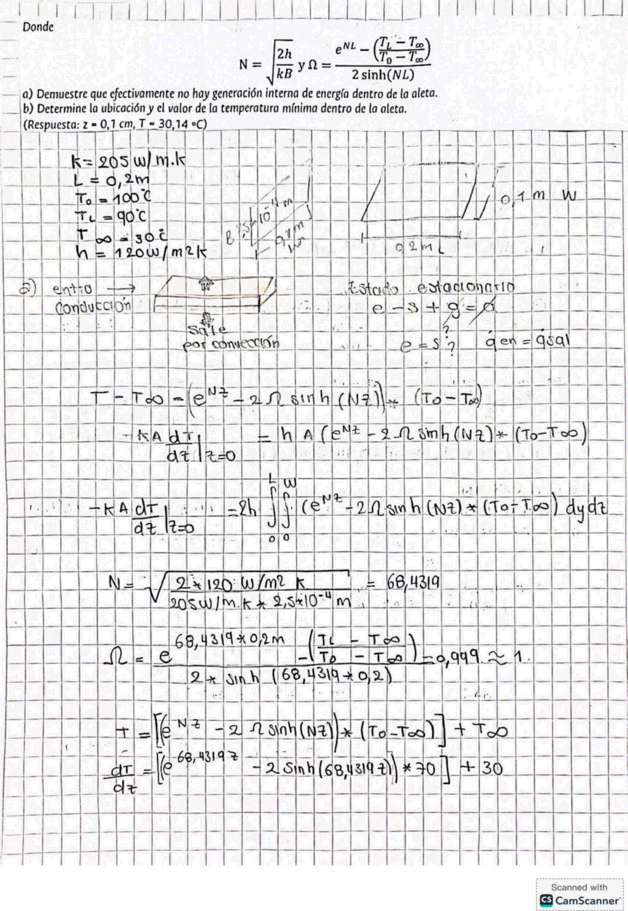 Donde
N = √(2h/kB) y Ω = (e^{NL} − ((T_L − T_∞)/(T_0 − T_∞))) / (2 sinh(NL))
a) Demuestre que efectivamente no hay generación interna de energía dentro de la aleta.
b) Determine la ubicación y el valor de la temperatura mínima dentro de la aleta.
(Respuesta: z = 0,1 cm, T = 30,14 °C)
k = 205 W/m.k
L = 0,2m
To = 100°C
TL = 90°C
T∞ = 30°C
h = 120 W/m2k
B
0,1m
0,1 m W
0,2m L
a) entra →
conducción
sale
por convección
Estado estacionario
e − s + g = 0
?
e = s ? q̇en = q̇sal
T − T∞ = (e^{Nz} − 2Ω sinh (Nz)) * (To − T∞)
−KA dT/dz |z=0 = h A (e^{Nz} − 2Ω sinh (Nz) * (To−T∞)
−KA dT/dz |z=0 = 2h ∫₀^L ∫₀^W (e^{Nz} − 2Ω sinh (Nz) * (To − T∞) dy dz
N = √(2*120 W/m2 k / 205 W/m.k * 2,5*10^{-4} m) = 68,4319
Ω = e^{68,4319*0,2m} − ((TL − T∞)/(To − T∞)) / 2* sinh (68,4319*0,2) = 0,999 ≈ 1.
T = [(e^{Nz} − 2Ω sinh(Nz)) * (To−T∞)] + T∞
dT/dz = [(e^{68,4319z} − 2 Sinh(68,4319z)) * 70] + 30
Scanned with
CS CamScanner